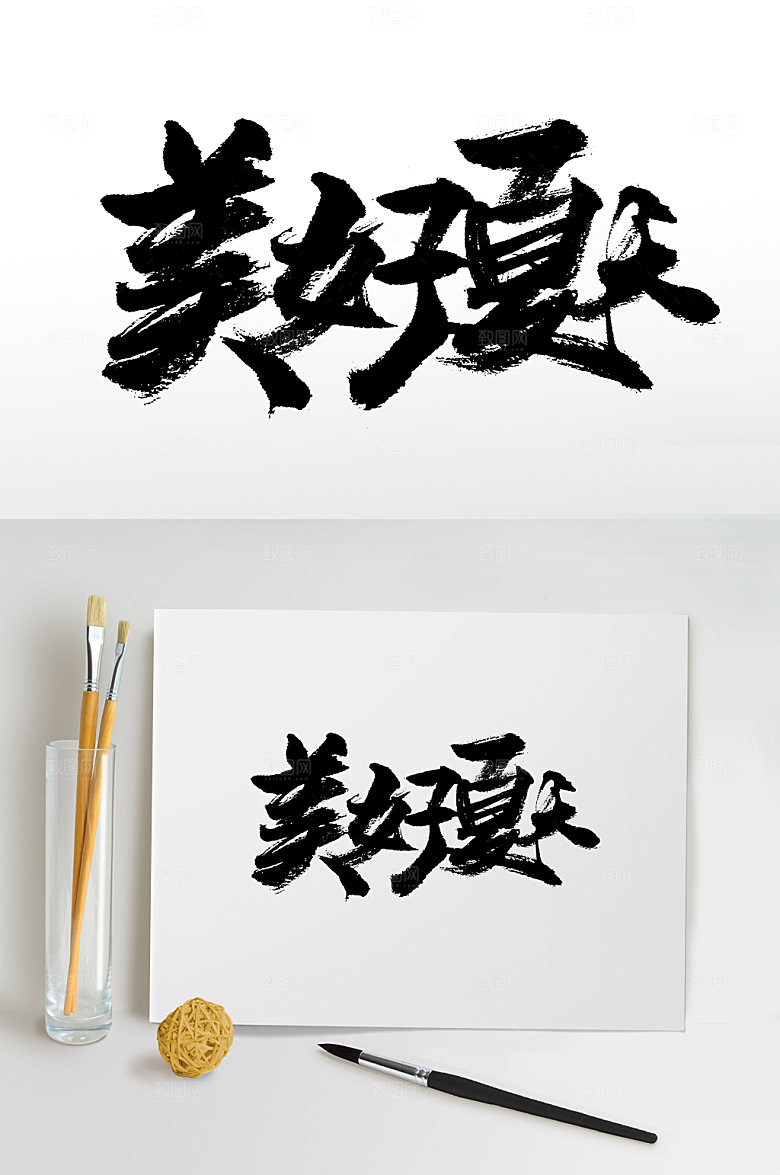 美好夏天
美好夏天